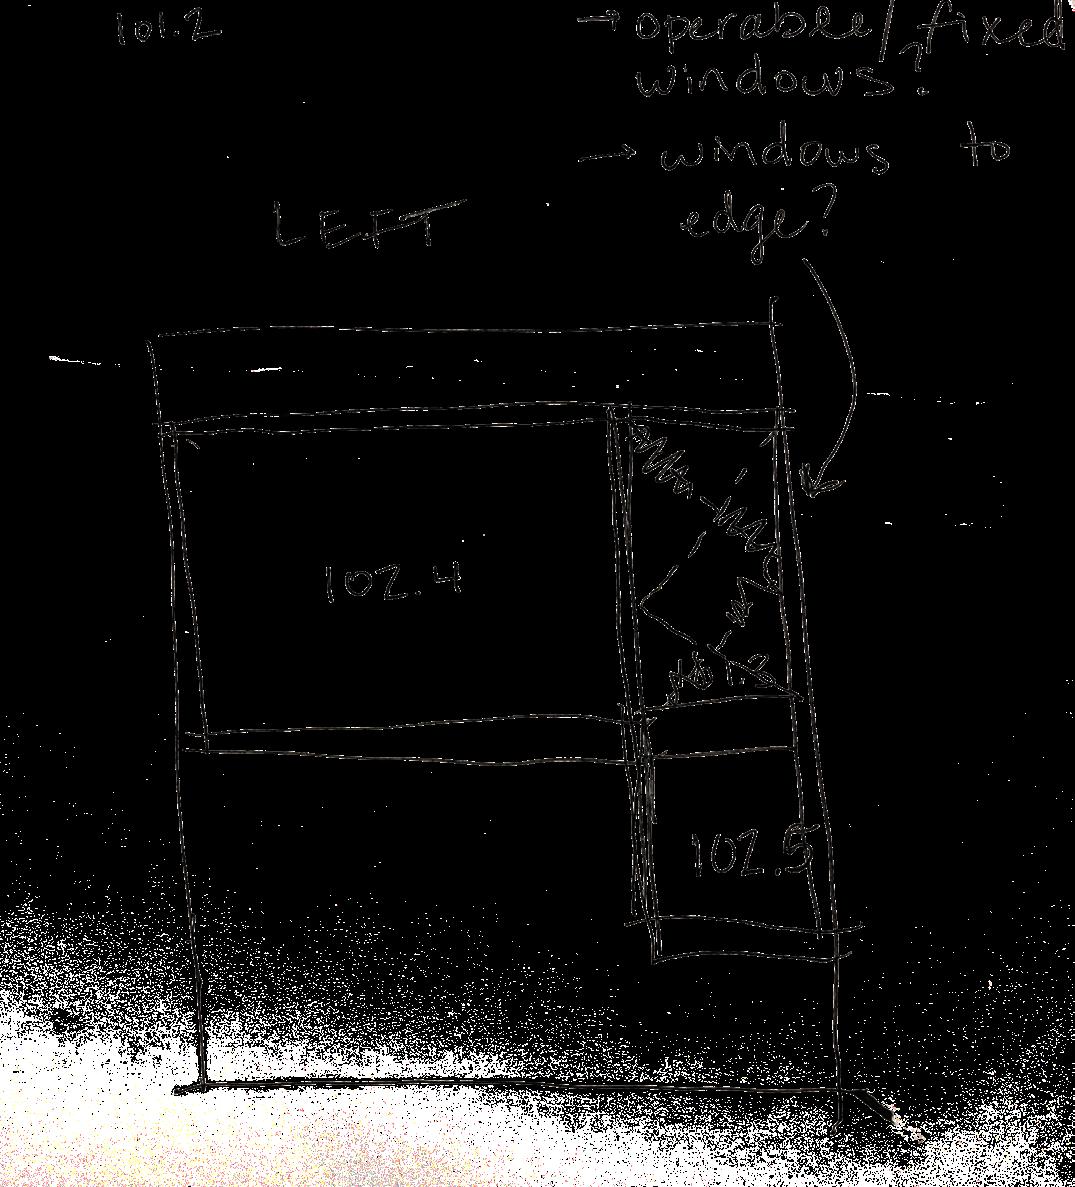 101.2
→ operable/fixed
windows?
→ windows to
edge?
LEFT
102.4
102.5